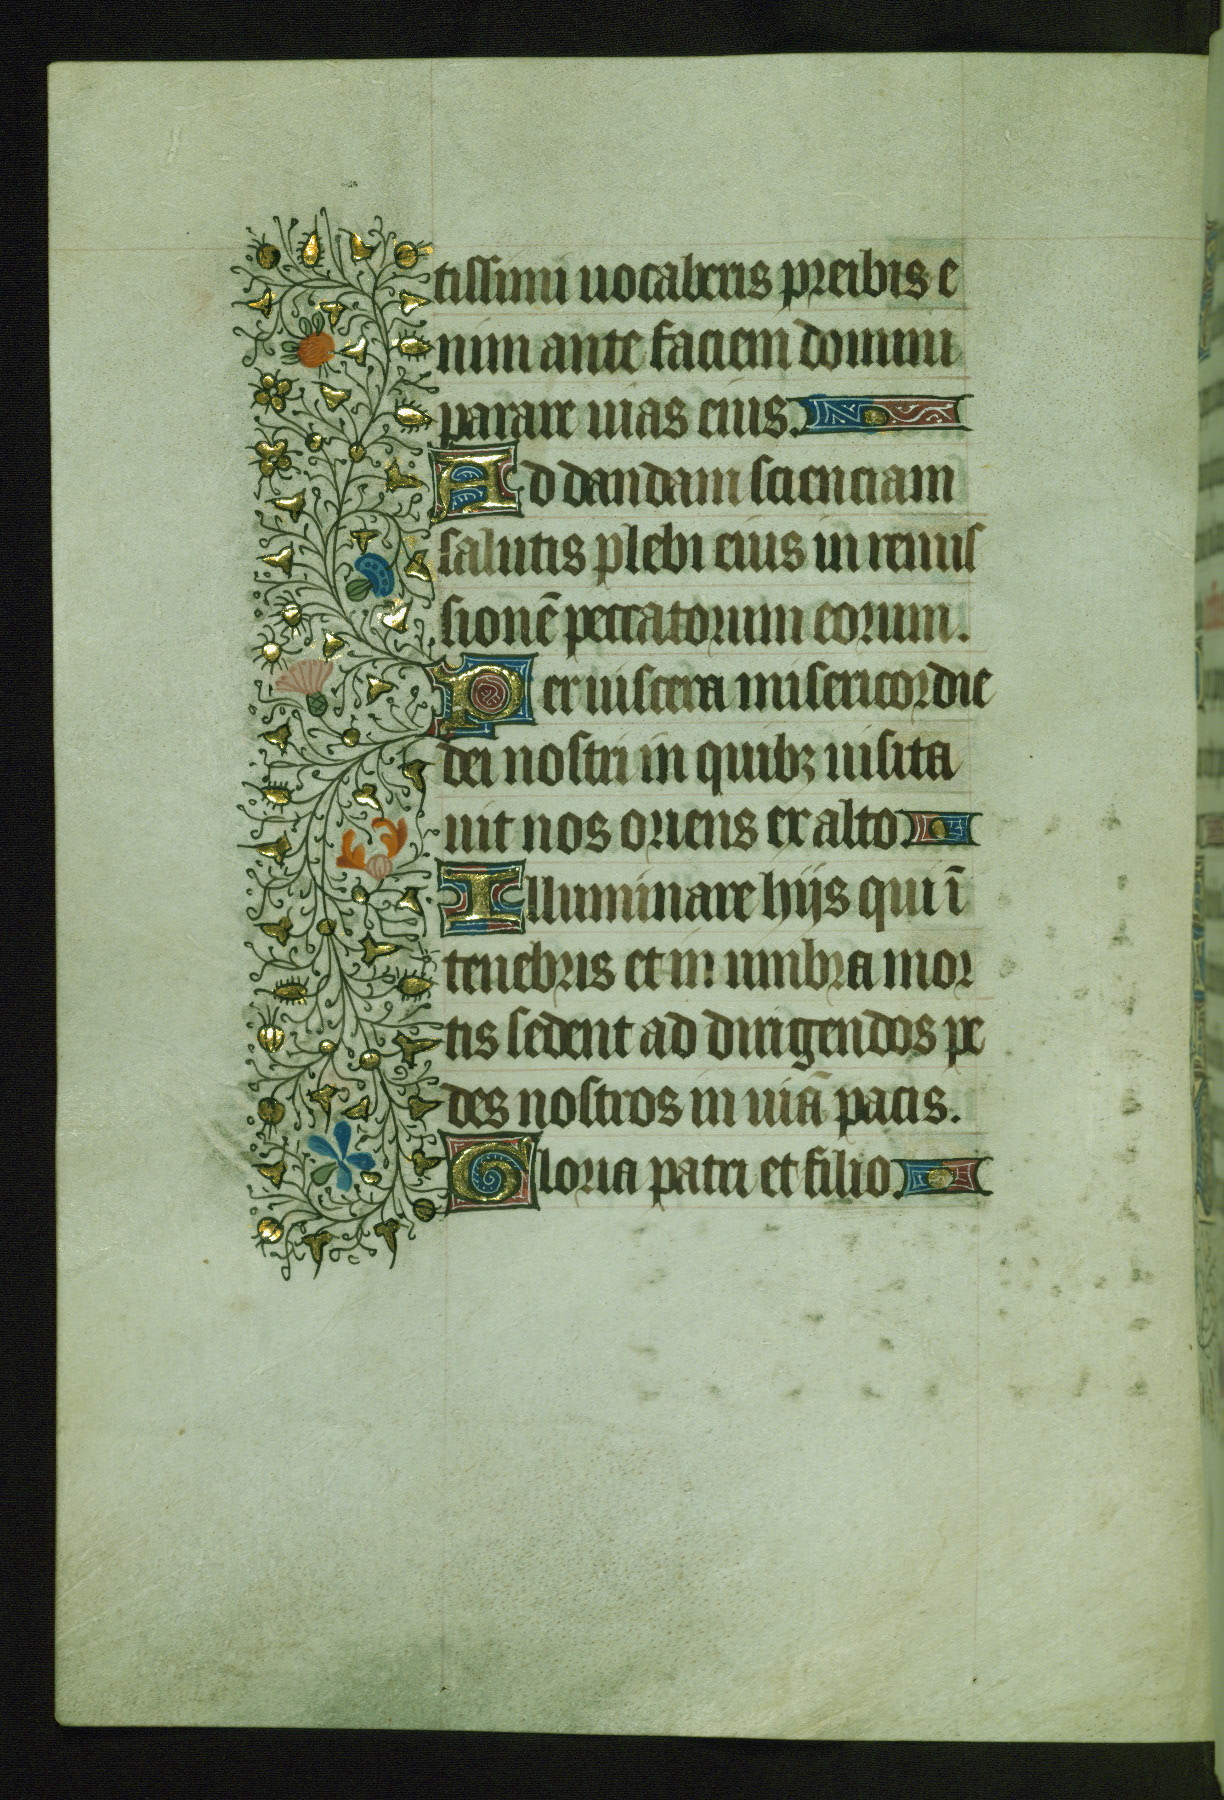 tissimi uocaberis preibis e
nim ante faciem domini
parare uias eius.
Ad dandam scienciam
salutis plebi eius in remis
sionē peccatorum eorum.
Per uiscera misericordie
dei nostri in quibꝫ uisita
uit nos oriens ex alto.
Illuminare hijs qui ī
tenebris et in umbra mor
tis sedent ad dirigendos pe
des nostros in uiā pacis.
Gloria patri et filio.